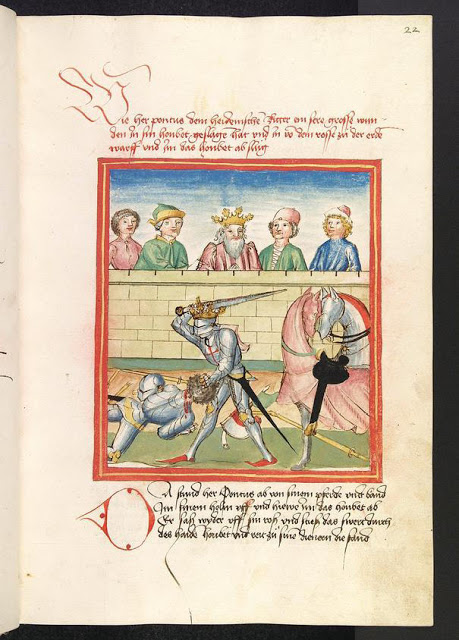 22
Wie her pontus dem heidenische Ritter ein sere grosse wun
den in sin houbet geslagē hat vnd in vō dem rosse zu der erdē
warff vnd im das houbet ab slug
Da stund her Pontus ab von sinem pferde vnd band
Im sinem helm vff vnd hiewe im das houbet ab
Er sasz wyder vff sin rosz vnd das swert durch
des heidē houbet vnd reit zu sinē dienern die